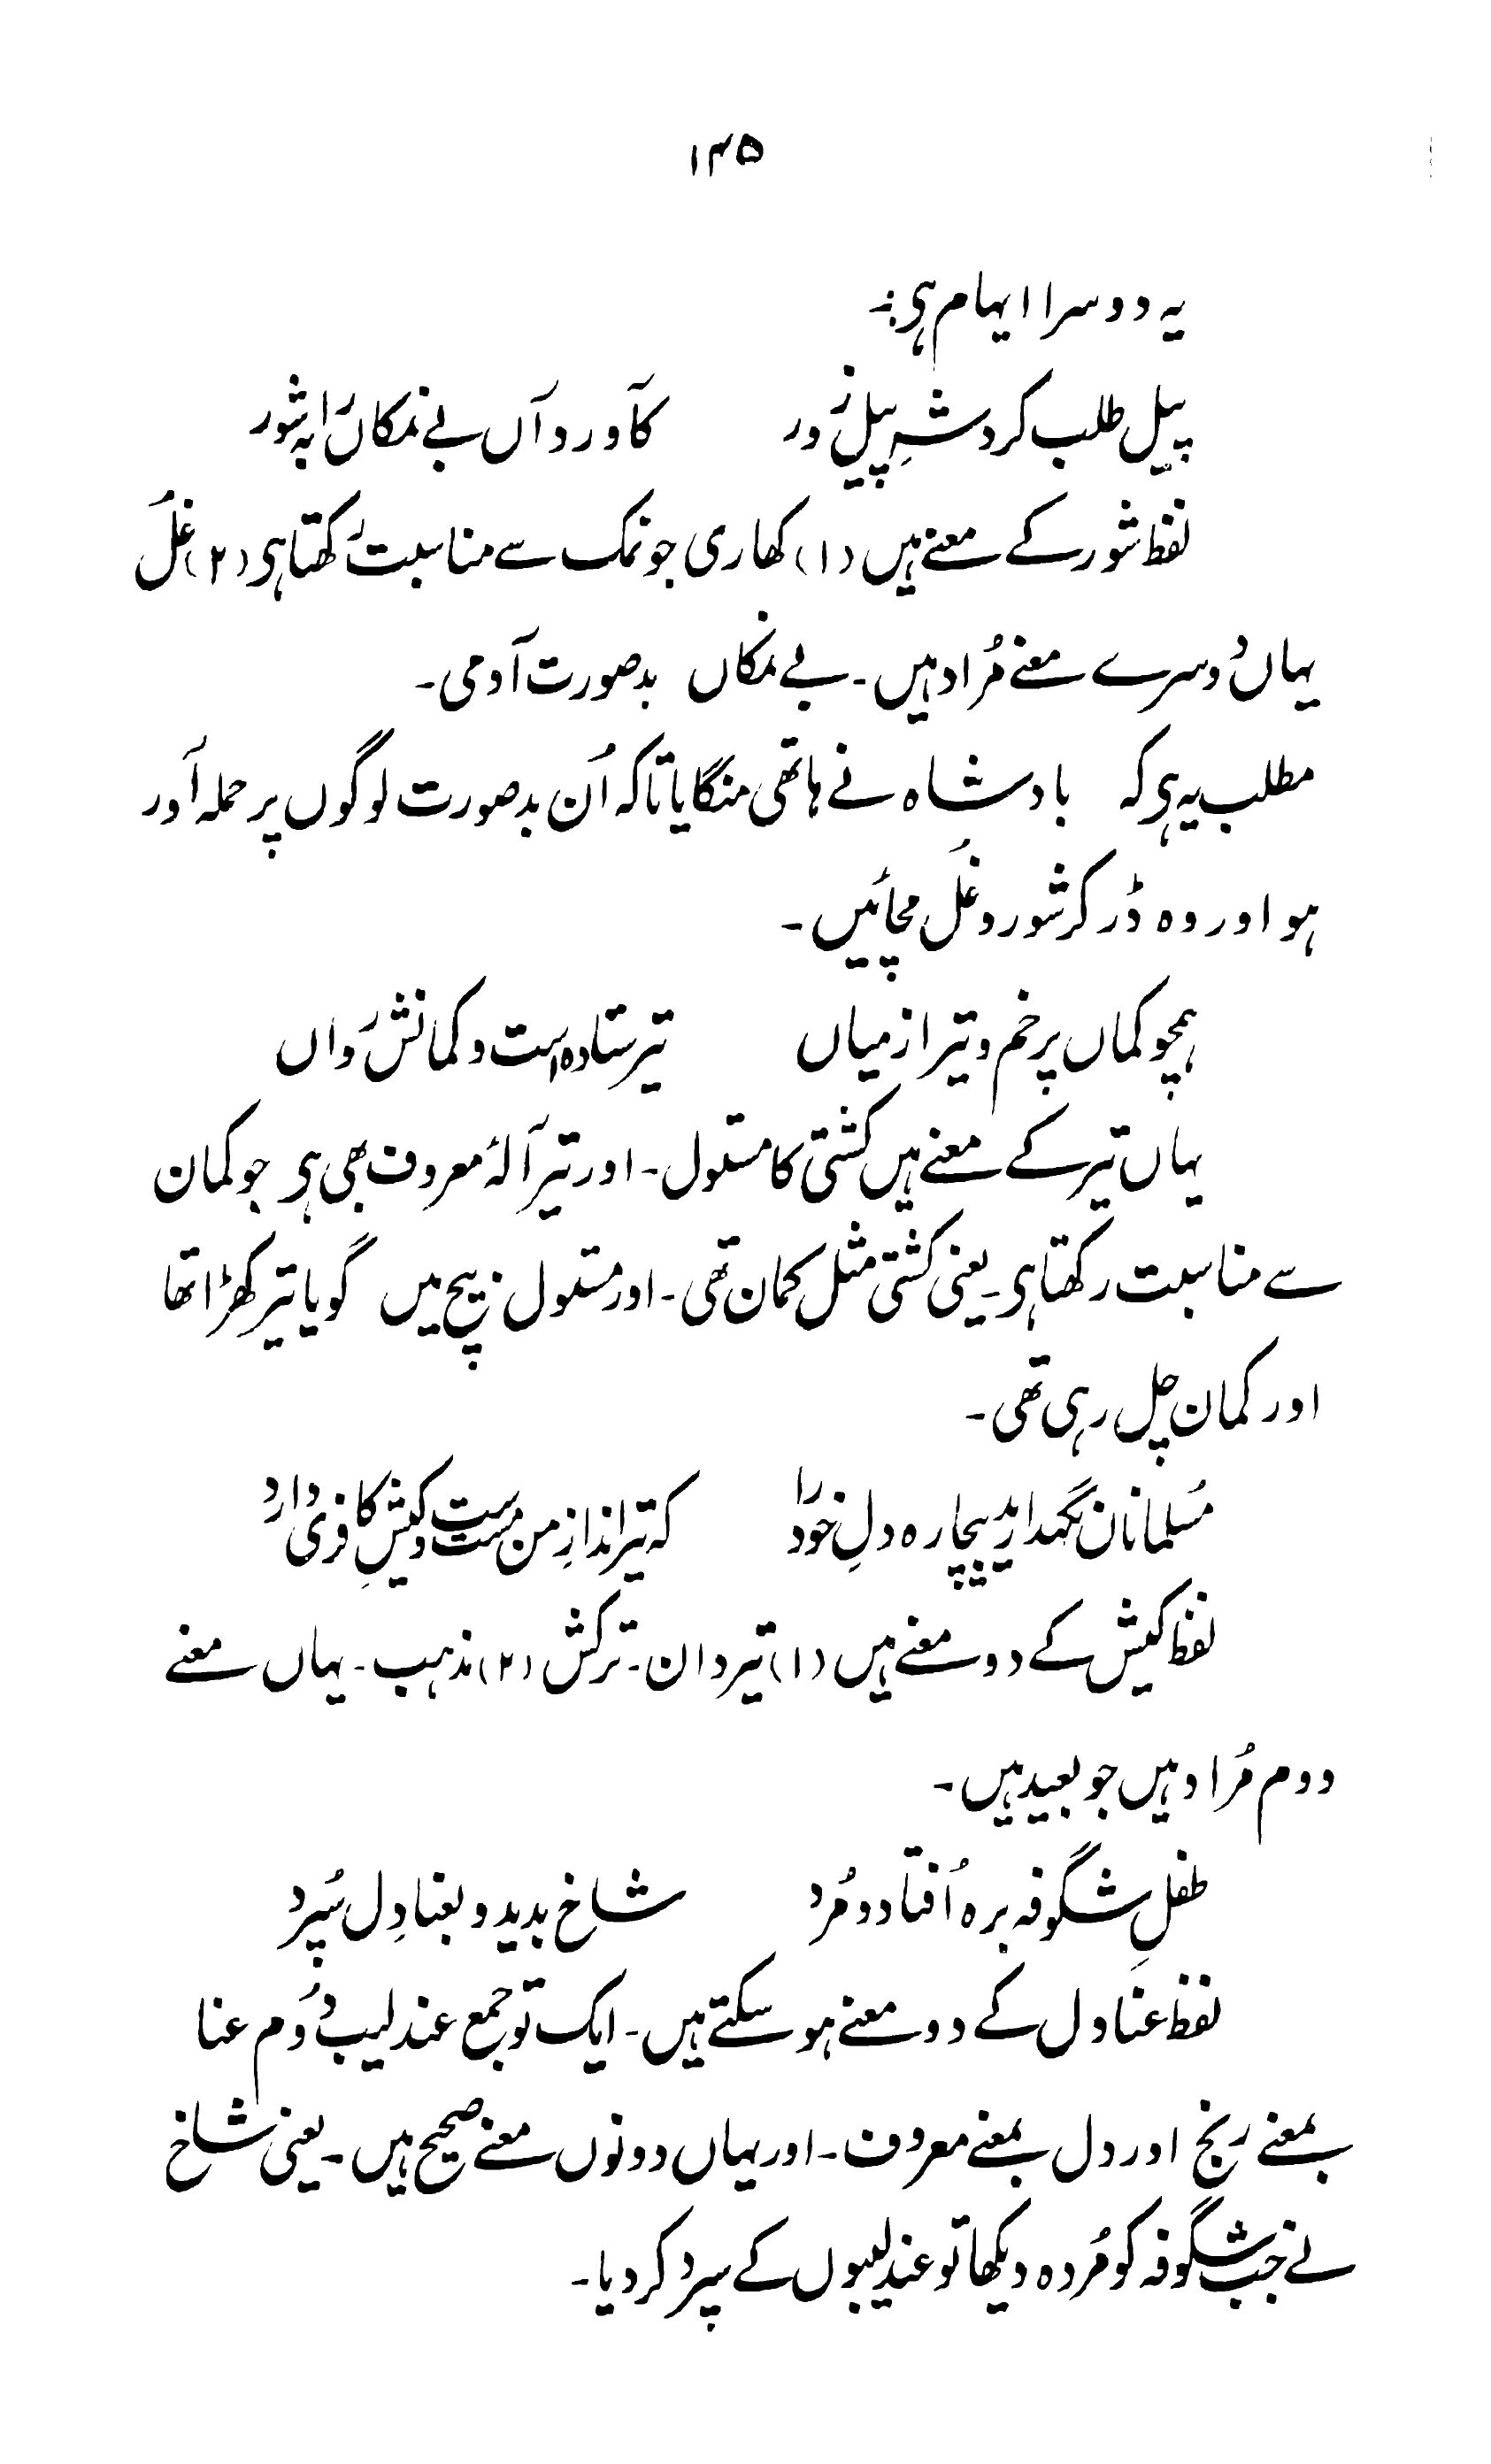 ۱۳۵
یہ دوسرا ایہام ہی:۔
پیل طلب کرد شہِ پیل زور کآورد آں بے نمکاں را بہ شور
لفظ شور کے معنے ہیں (۱) کھاری جو نمک سے مناسبت رکھتا ہی (۲) غُل
یہاں دوسرے معنے مُراد ہیں۔ بے نمکاں بدصورت آدمی۔
مطلب یہ ہی کہ بادشاہ نے ہاتھی منگایا تاکہ اُن بدصورت لوگوں پر حملہ آور
ہو اور وہ ڈر کر شور و غُل مچائیں۔
ہمچو کماں پرخم و تیر از میاں تیر ستادہ است و کمانش رواں
یہاں تیر کے معنے ہیں کشتی کا مستول۔ اور تیر آلۂ معروف بھی ہی جو کمان
سے مناسبت رکھتا ہی۔ یعنی کشتی مثل کمان تھی۔ اور مستول بیچ میں گویا تیر کھڑا تھا
اور کمان چل رہی تھی۔
مُسلمانان نگہدارید بیچارہ دلِ خود را کہ تیر اندازِ من مست ست و کیشِ کافری دارد
لفظ کیش کے دو معنے ہیں (۱) تیردان۔ ترکش (۲) مذہب۔ یہاں معنے
دوم مُراد ہیں جو بعید ہیں۔
طفلِ شگوفہ برہ اُفتاد و مُرد شاخ بدید و بعنادِل سُپرد
لفظ عنادل کے دو معنے ہو سکتے ہیں۔ ایک تو جمع عندلیب دُوم عنا
بمعنے رنج اور دل بمعنے معروف۔ اور یہاں دونوں معنے صحیح ہیں۔ یعنی شاخ
نے جب شگوفہ کو مُردہ دیکھا تو عندلیبوں کے سپرد کر دیا۔